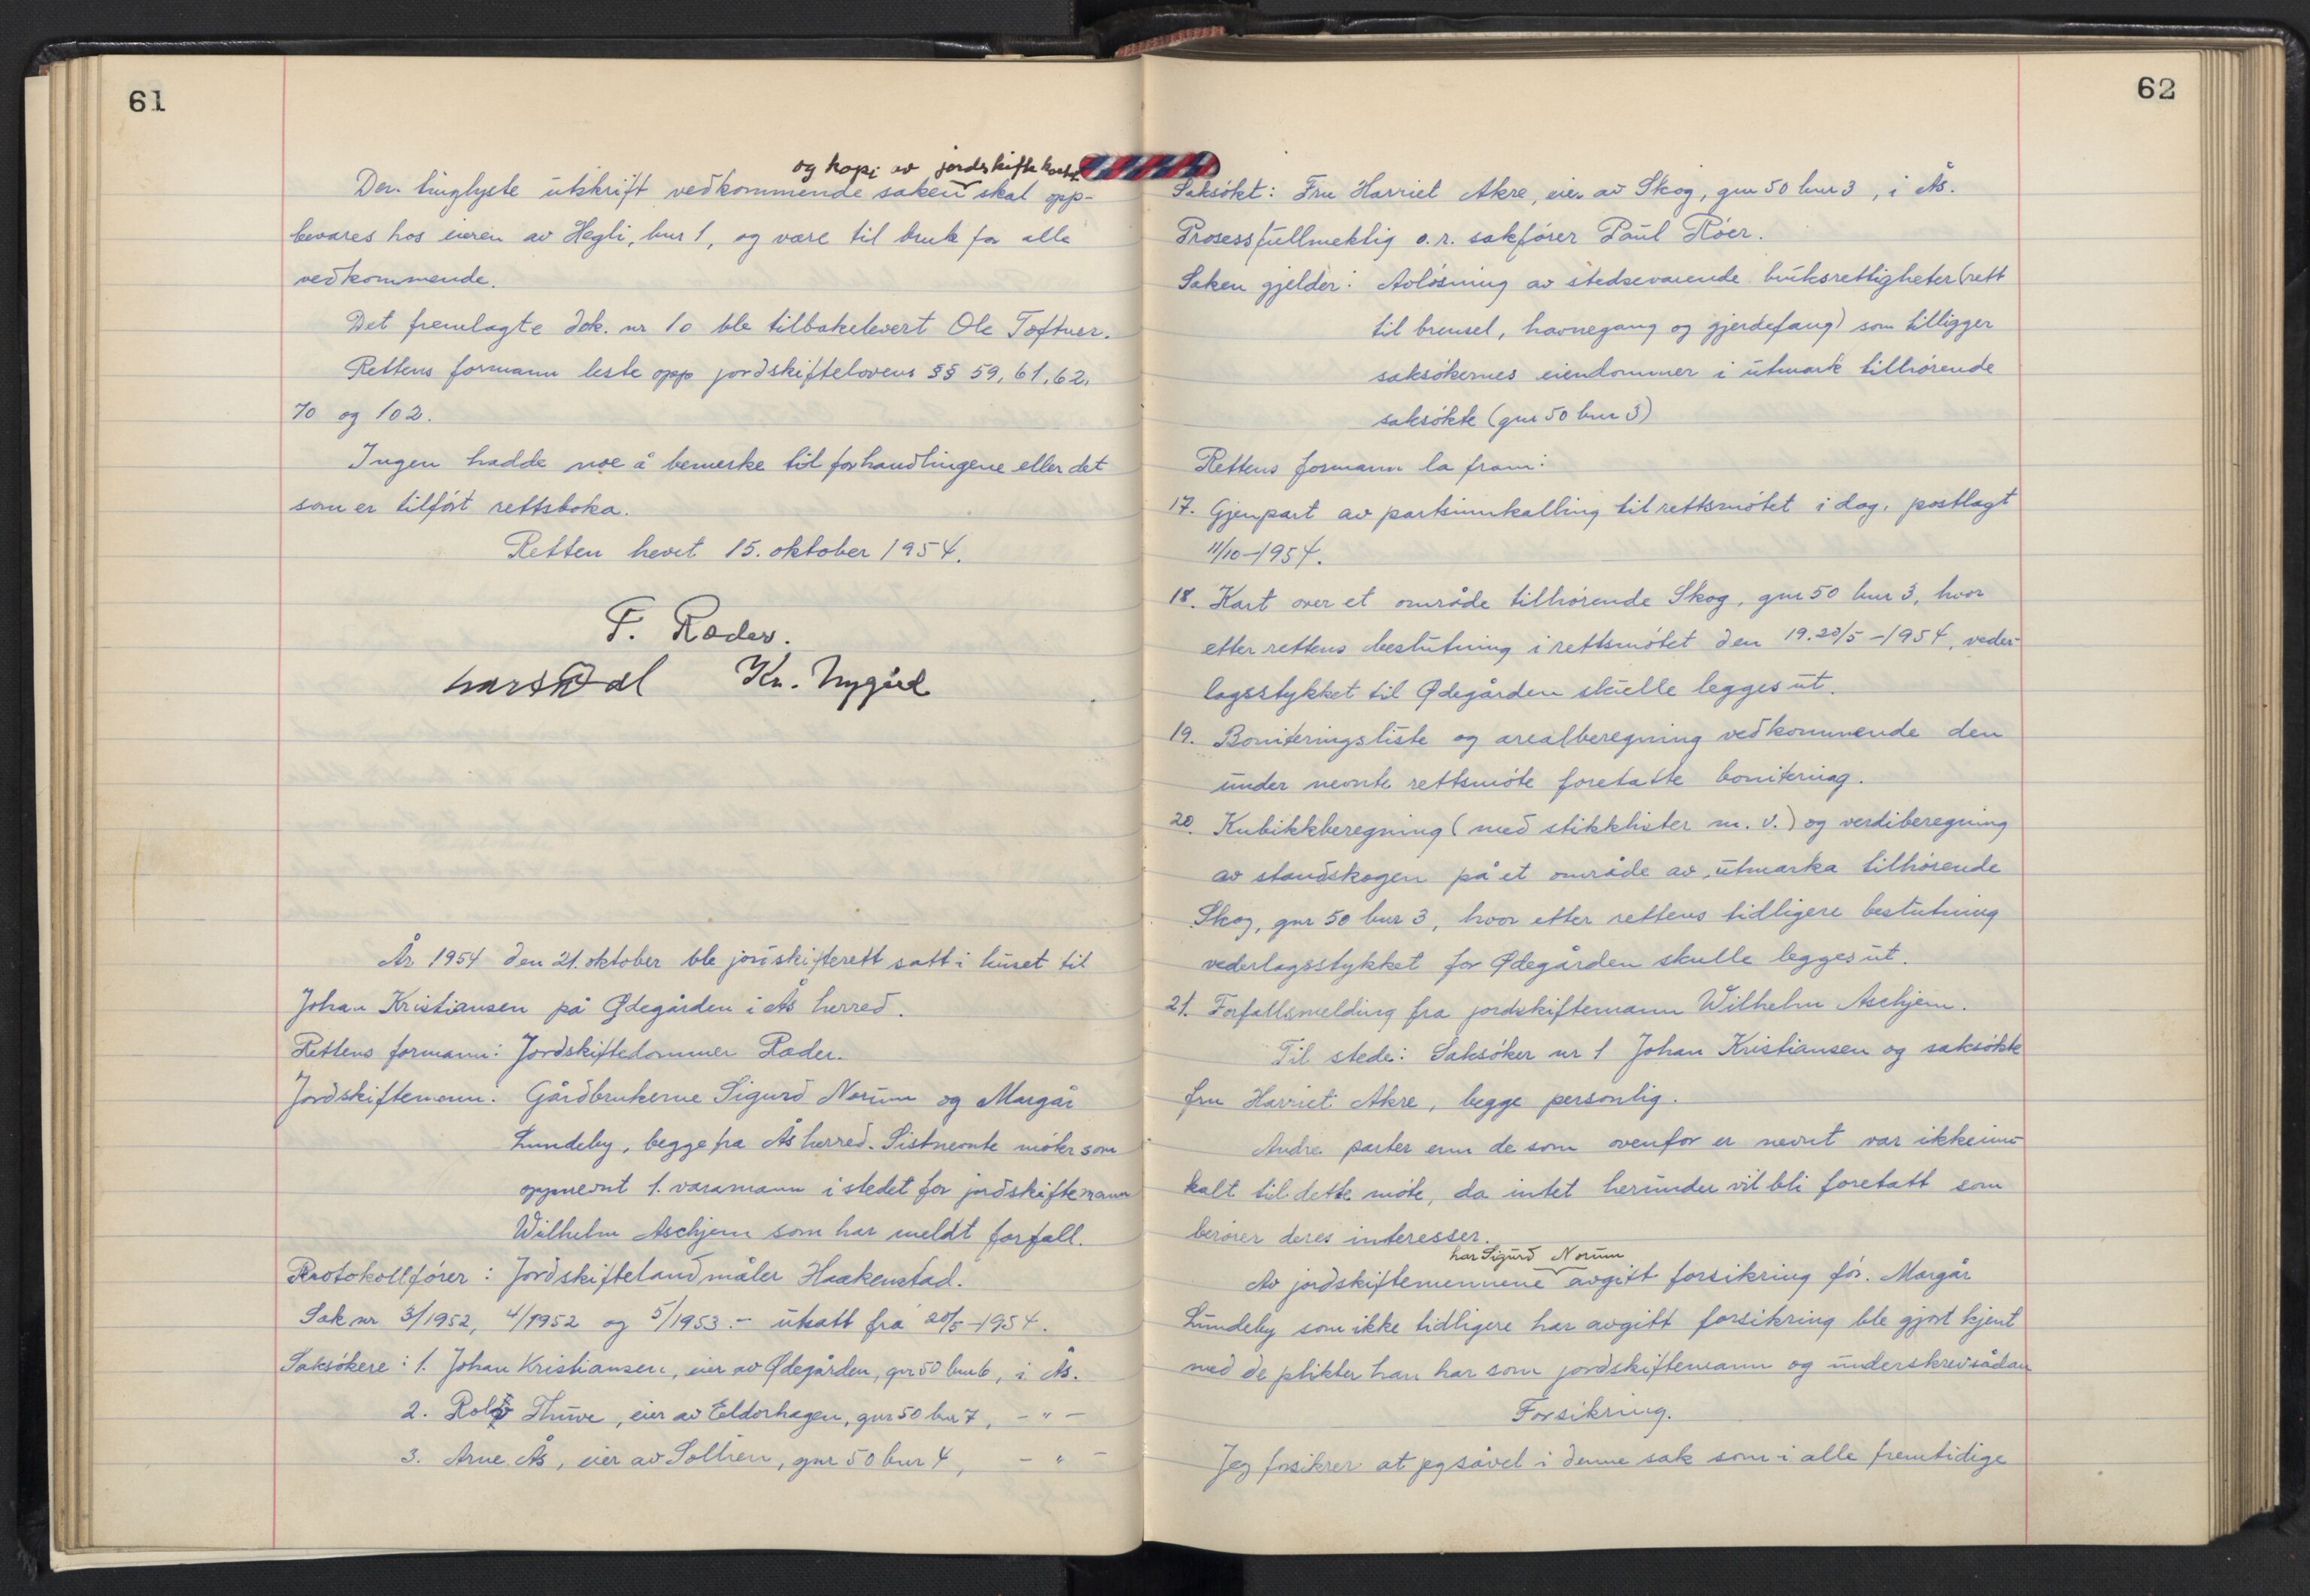 61
og kopi av jordskiftekartet
Den tinglyste utskrift vedkommende saken skal opp-
bevares hos eieren av Hegli, bnr 1, og være til bruk for alle
vedkommende.
Det fremlagte dok. nr 10 ble tilbakelevert Ole Toftner.
Rettens formann leste opp jordskiftelovens §§ 59, 61, 62,
70 og 102.
Ingen hadde noe å bemerke til forhandlingene eller det
som er tilført rettsboka.
Retten hevet 15. oktober 1954.
F. Ræder.
Lars Dal Kr. Nygård
År 1954 den 21. oktober ble jordskifterett satt i huset til
Johan Kristiansen på Ødegården i Ås herred.
Rettens formann: Jordskiftedommer Ræder.
Jordskiftemenn: Gårdbrukerne Sigurd Norum og Margår
Lundeby, begge fra Ås herred. Sistnevnte møter som
oppnevnt 1. varamann i stedet for jordskiftemann
Wilhelm Aschjem som har meldt forfall.
Protokollfører: Jordskiftelandmåler Haakenstad.
Sak nr 3/1952, 4/1952 og 5/1953.- utsatt fra 20/5-1954.
Saksøkere: 1. Johan Kristiansen, eier av Ødegården, gnr 50 bnr 6, i Ås.
2. Rolf Thuve, eier av Eldorhagen, gnr 50 bnr 7, - " -
3. Arne Ås, eier av Solhien, gnr 50 bnr 4, - " -
62
Saksøkt: Fru Harriet Akre, eier av Skog, gnr 50 bnr 3, i Ås.
Prosessfullmektig o.r. sakfører Paul Röer.
Saken gjelder: Avløsning av stedsevarende bruksrettigheter (rett
til brensel, havnegang og gjerdefang) som tilligger
saksøkernes eiendommer i utmark tilhørende
saksøkte (gnr 50 bnr 3)
Rettens formann la fram:
17. Gjenpart av partsinnkalling til rettsmøtet i dag, postlagt
11/10-1954.
18. Kart over et område tilhørende Skog, gnr 50 bnr 3, hvor
etter rettens beslutning i rettsmøtet den 19.20/5-1954, veder-
lagsstykket til Ødegården skulle legges ut.
19. Boniteringsliste og arealberegning vedkommende den
under nevnte rettsmøte foretatte bonitering.
20. Kubikkberegning (med stikklister m. v.) og verdiberegning
av standskogen på et område av utmarka tilhørende
Skog, gnr 50 bnr 3, hvor etter rettens tidligere beslutning
vederlagsstykket for Ødegården skulle legges ut.
21. Forfallsmelding fra jordskiftemann Wilhelm Aschjem.
Til stede: Saksøker nr 1 Johan Kristiansen og saksøkte
fru Harriet Akre, begge personlig.
Andre parter enn de som ovenfor er nevnt var ikke inn-
kalt til dette møte, da intet herunder vil bli foretatt som
berører deres interesser.
har Sigurd Norum
Av jordskiftemennene avgitt forsikring før. Margår
Lundeby som ikke tidligere har avgitt forsikring ble gjort kjent
med de plikter han har som jordskiftemann og underskrev sådan
Forsikring.
Jeg forsikrer at jeg såvel i denne sak som i alle fremtidige